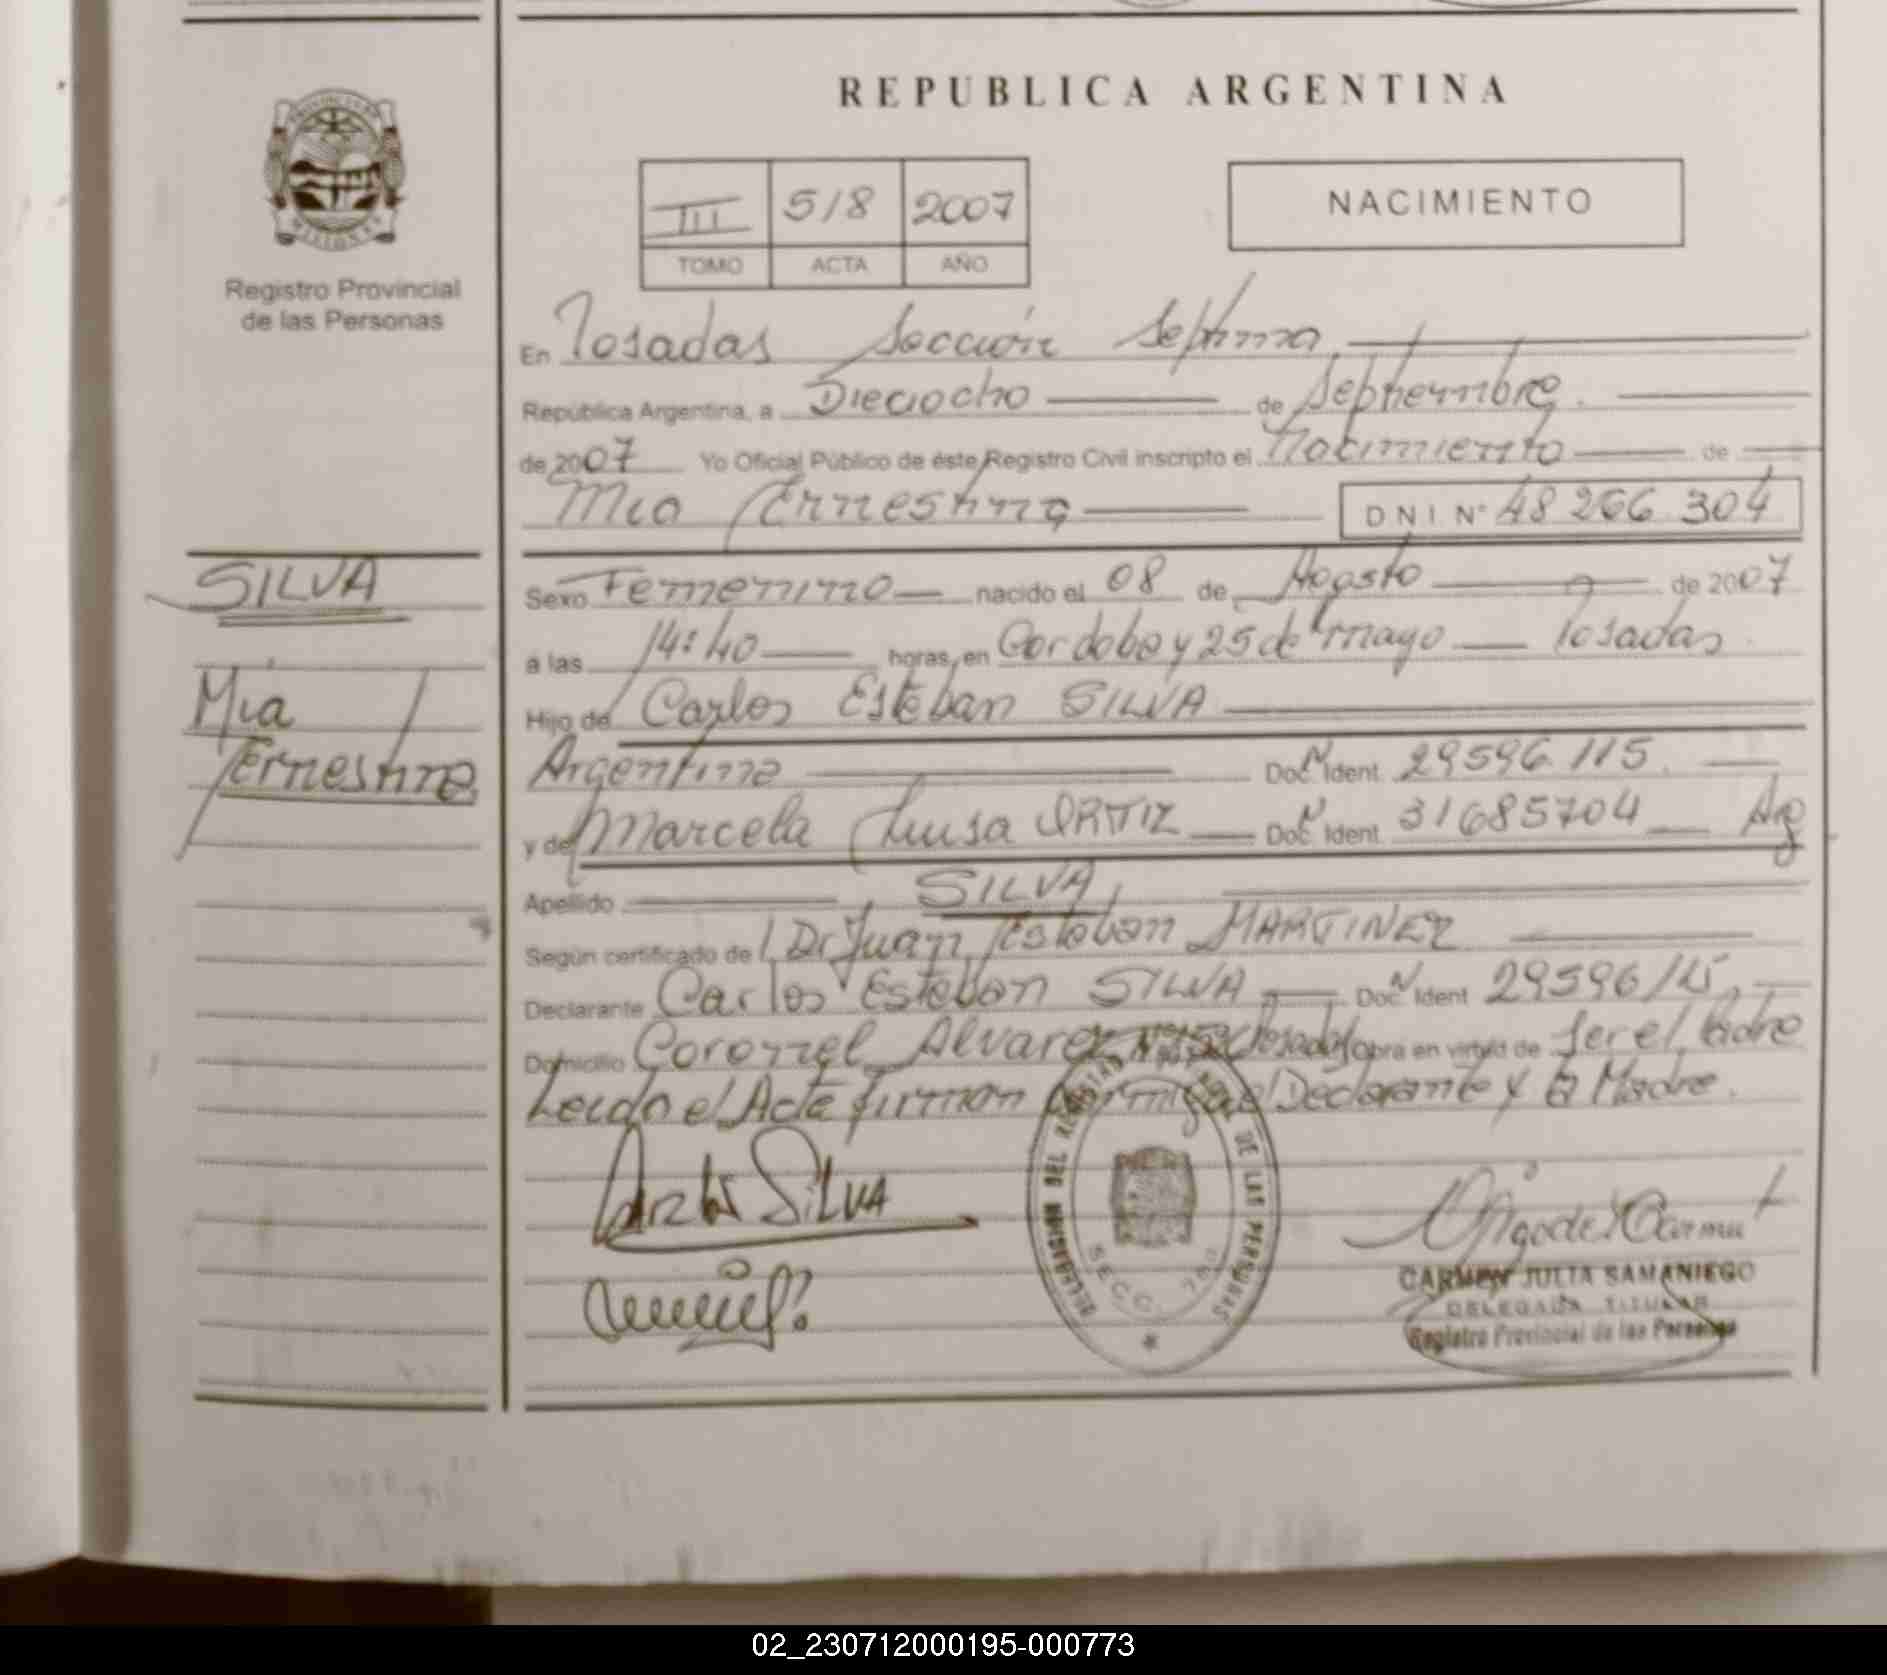 REPUBLICA ARGENTINA
PROVINCIA DE
MISIONES
Registro Provincial
de las Personas
III 518 2007
TOMO ACTA AÑO
NACIMIENTO
En Posadas Sección Septima
República Argentina, a Dieciocho de Septiembre.
de 2007 Yo Oficial Público de éste Registro Civil inscripto el Nacimiento de
Mia Ernestina DNI Nº 48 266 304
SILVA
Mia
Ernestina
Sexo Femenino nacido el 08 de Agosto de 2007
a las 14:40 horas, en Cordoba y 25 de mayo Posadas.
Hijo de Carlos Esteban SILVA
Argentina Doc. N Ident 29596.115.
y de Marcela Luisa ORTIZ Doc. N Ident 31685704 Arg
Apellido SILVA,
Según certificado de Dr Juan Esteban MARTINEZ
Declarante Carlos Esteban SILVA Doc. N Ident 29596115,
Domicilio Coronel Alvarez Posadas Obra en virtud de ser el Padre
Leido el Acta firman el Declarante y la Madre.
Carlos SILVA
DELEGACION DEL REGISTRO DE LAS PERSONAS
SECC. 7ma
CARMEN JULIA SAMANIEGO
DELEGADA TITULAR
Registro Provincial de las Personas
02_230712000195-000773